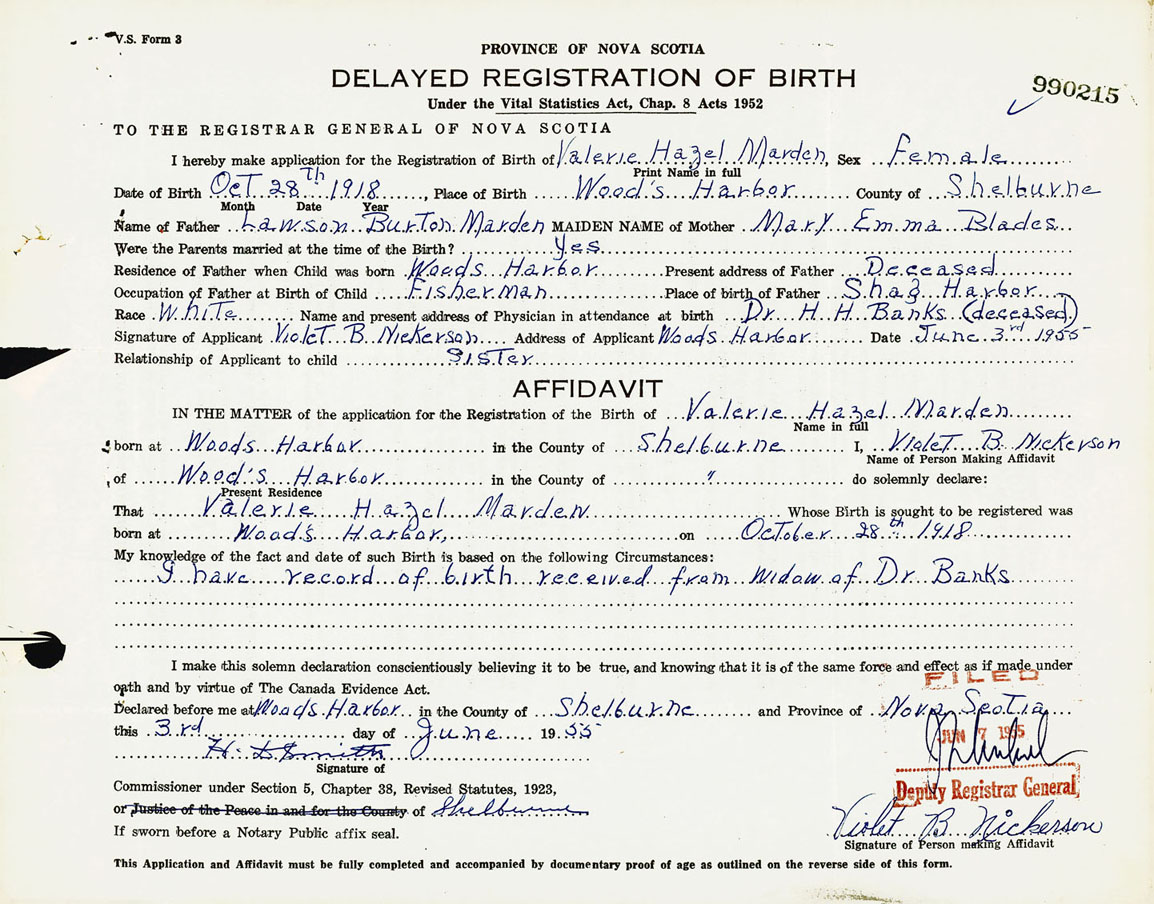 V.S. Form 3
PROVINCE OF NOVA SCOTIA
DELAYED REGISTRATION OF BIRTH
990215
Under the Vital Statistics Act, Chap. 8 Acts 1952
TO THE REGISTRAR GENERAL OF NOVA SCOTIA
I hereby make application for the Registration of Birth of Valerie Hazel Marden Sex Female
Print Name in full
Date of Birth Oct 28th 1918, Place of Birth Wood's Harbor County of Shelburne
Month Date Year
Name of Father Lawson Burton Marden MAIDEN NAME of Mother Mary Emma Blades
Were the Parents married at the time of the Birth? Yes
Residence of Father when Child was born Woods Harbor Present address of Father Deceased
Occupation of Father at Birth of Child Fisherman Place of birth of Father Shag Harbor
Race White Name and present address of Physician in attendance at birth Dr H H Banks (deceased)
Signature of Applicant Violet B Nickerson Address of Applicant Woods Harbor Date June 3rd 1955
Relationship of Applicant to child Sister
AFFIDAVIT
IN THE MATTER of the application for the Registration of the Birth of Valerie Hazel Marden
Name in full
born at Woods Harbor in the County of Shelburne I, Violet B. Nickerson
Name of Person Making Affidavit
of Wood's Harbor in the County of " do solemnly declare:
Present Residence
That Valerie Hazel Marden Whose Birth is sought to be registered was
born at Wood's Harbor, on October 28th 1918
My knowledge of the fact and date of such Birth is based on the following Circumstances:
I have record of birth received from widow of Dr Banks
I make this solemn declaration conscientiously believing it to be true, and knowing that it is of the same force and effect as if made under
oath and by virtue of The Canada Evidence Act.
FILED
Declared before me at Woods Harbor in the County of Shelburne and Province of Nova Scotia
this 3rd day of June 1955
JUN 7 1955
H. D Smith
Signature of
Commissioner under Section 5, Chapter 38, Revised Statutes, 1923,
Deputy Registrar General
or Justice of the Peace in and for the County of Shelburne
Violet B Nickerson
If sworn before a Notary Public affix seal.
Signature of Person making Affidavit
This Application and Affidavit must be fully completed and accompanied by documentary proof of age as outlined on the reverse side of this form.